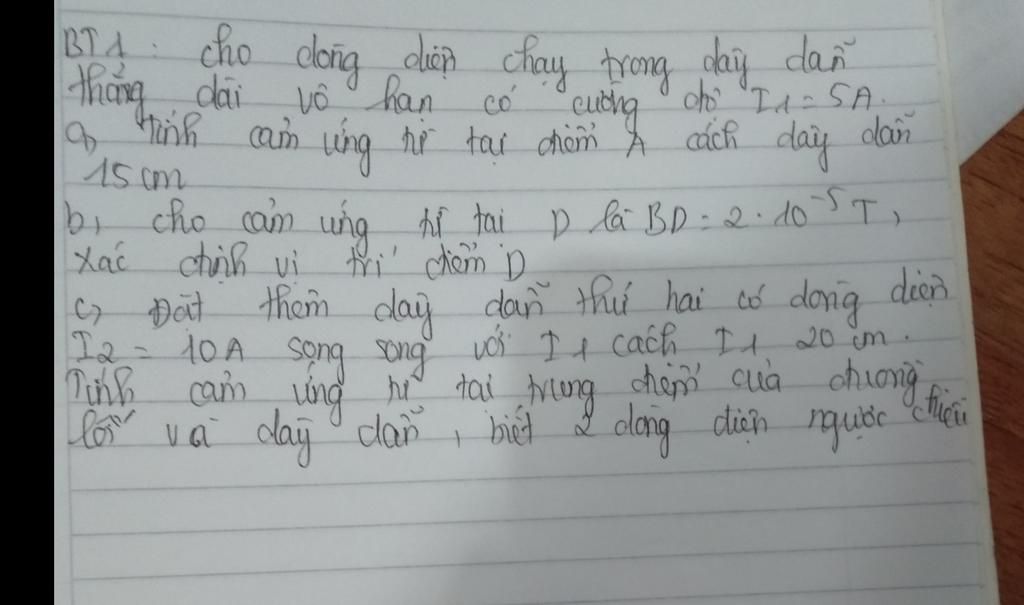 BT1: cho dòng điện chạy trong dây dẫn
thẳng dài vô hạn có cường độ I1 = 5A.
a, Tính cảm ứng từ tại điểm A cách dây dẫn
15 cm
b, cho cảm ứng từ tại D là BD = 2.10⁻⁵ T,
xác định vị trí điểm D
c, Đặt thêm dây dẫn thứ hai có dòng điện
I2 = 10A song song với I1 cách I1 20 cm.
Tính cảm ứng từ tại trung điểm của đường
nối và dây dẫn, biết 2 dòng điện ngược chiều